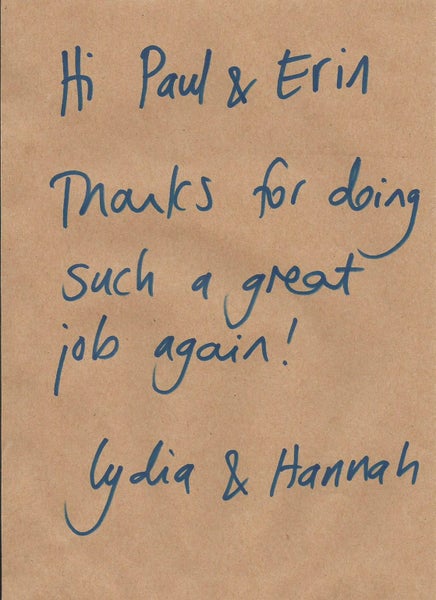 Hi Paul & Erin
Thanks for doing
such a great
job again!
Lydia & Hannah